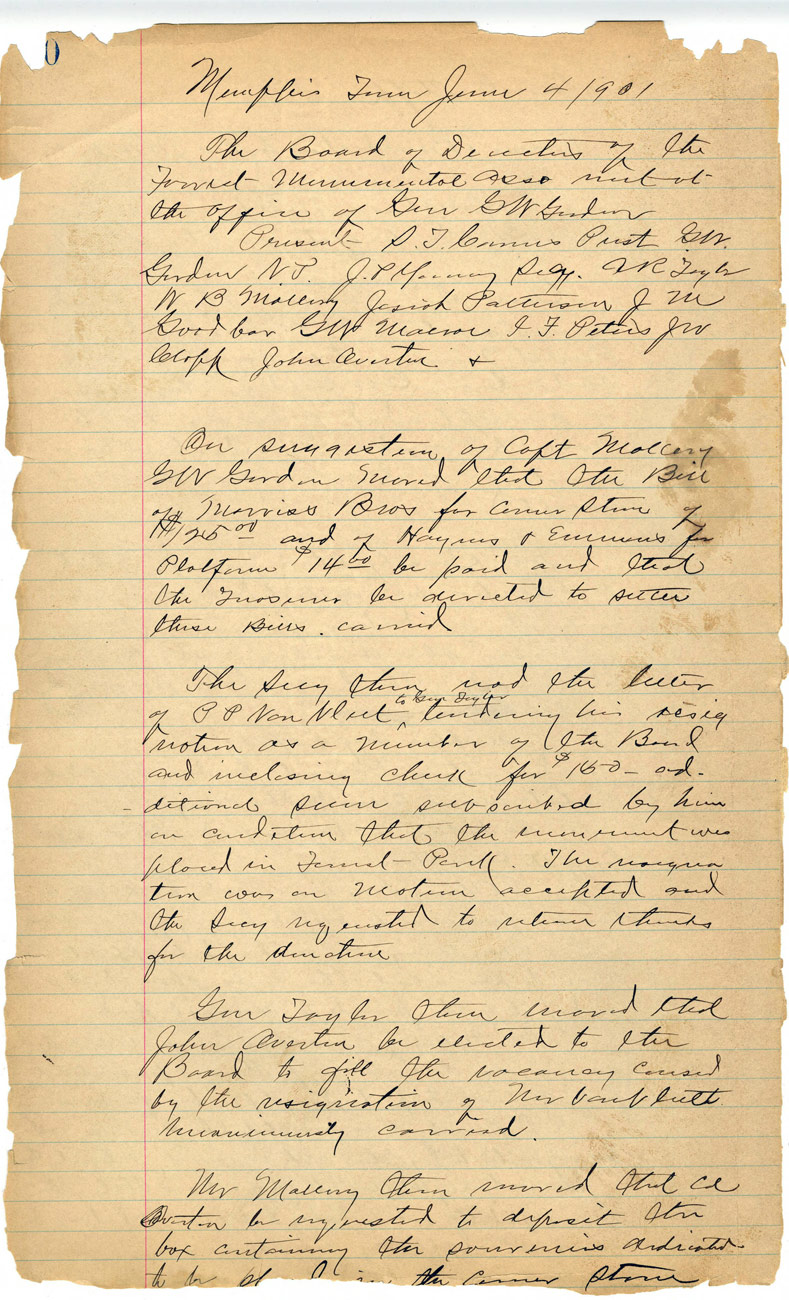 0
Memphis Tenn June 4 1901
The Board of Directors of the
Forrest Monumental Asso met at
the office of Gen GW Gordon
Present S. T. Carnes Prest G.W.
Gordon V.P. J. P Secy. Taylor
W B Mallory Josiah Patterson J M
Goodbar GW Macrae I. F. Peters JW
Clapp John Overton +
On suggestion of Capt Mallory
GW Gordon moved that the Bill
of Morriss Bros for corner stone of
$125 00 and of Haynes & Emmons for
Platform $14 00 be paid and that
the Treasurer be directed to settle
these Bills. carried
The Secy then read the letter
to Gen Taylor
of P P Van Vleet tendering his resig
nation as a member of the Board
and inclosing check for $150 - ad-
ditional sum subscribed by him
on condition that the monument was
placed in Forrest Park. The resigna
tion was on motion accepted and
the Secy requested to return thanks
for the donation
Gen Taylor then moved that
John Overton be elected to the
Board to fill the vacancy caused
by the resignation of Mr Van Vleett
Unanimously carried.
Mr Mallory then moved that Col
Overton be requested to deposit the
box containing the souvenirs dedicated
to be in the corner stone